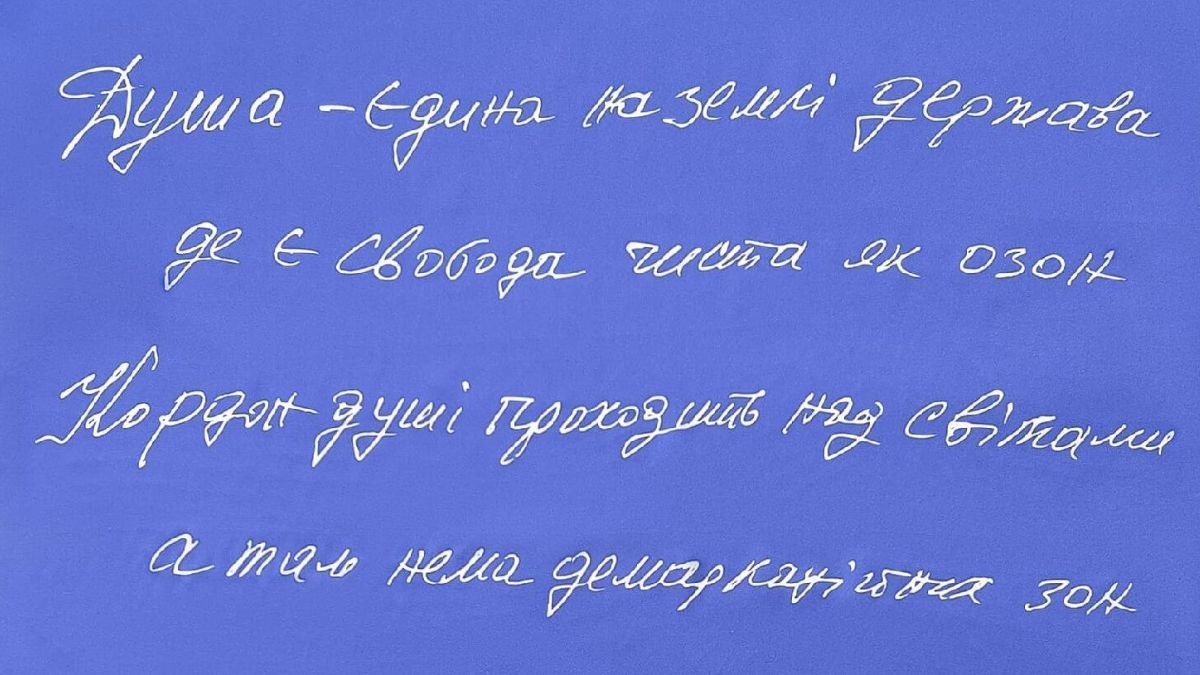 Душа – єдина на землі держава
де є свобода чиста як озон
Кордон душі проходить над світами
а там нема демаркаційних зон